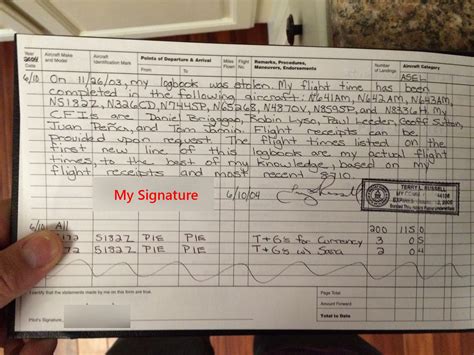 Year 2004
Date
Aircraft Make and Model
Aircraft Identification Mark
Points of Departure & Arrival
From To
Miles Flown
Flight No.
Remarks, Procedures, Maneuvers, Endorsements
Number of Landings
Aircraft Category
ASEL
6/10 On 11/26/03, my logbook was stolen. My flight time has been
completed in the following aircraft: N641AM, N642AM, N643AM,
N5132Z, N326CD, N7445P, N65268, N4370V, N8359P, and N8336H. My
CFIs are Daniel Robin Lyso, Paul Leeder, Scott Sutton,
Juan and Tom Flight receipts can be
provided upon request. The flight times listed on the
first new line of this logbook are my actual flight
times, to the best of my knowledge, based on my
flight receipts and most recent 8710.
My Signature
6/10/04
TERRY L. RUSSELL
MY COMM
EXPIRES
6/10 All 200 115.0
5132Z PIE PIE T+G's for Currency 3 0.5
72 5132Z PIE PIE T+G's w/ Sara 2 0.4
I certify that the statements made by me on this form are true.
Pilot's Signature,
Page Total
Amount Forward
Total to Date